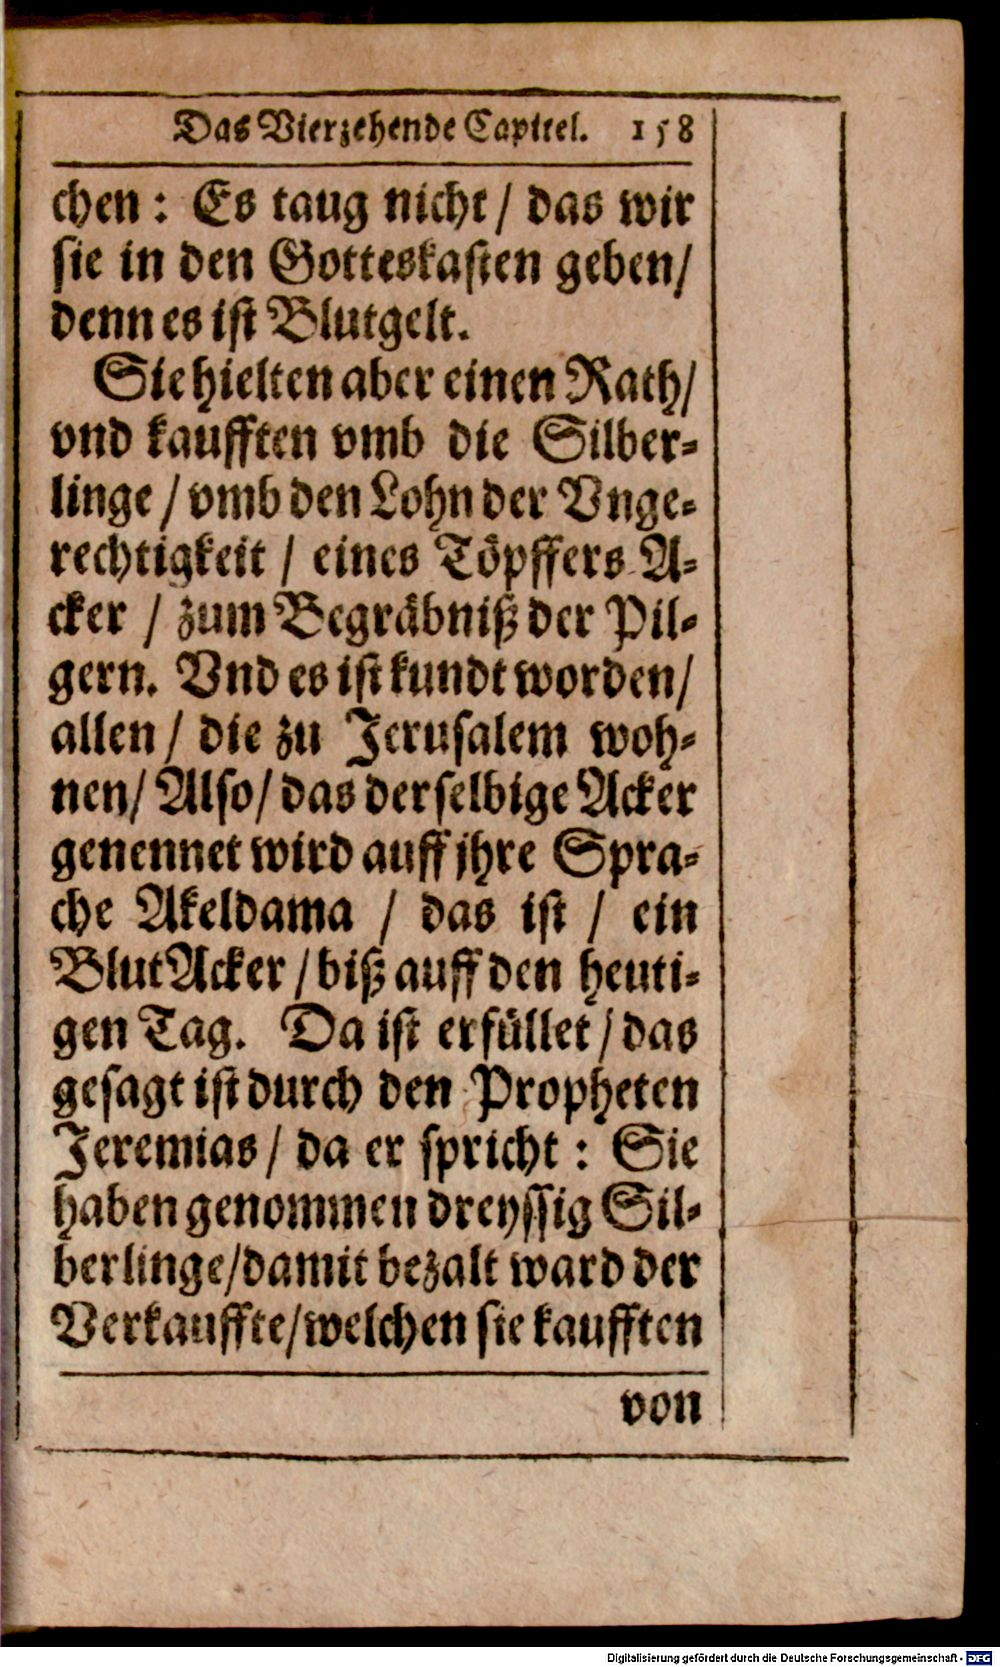 Das Vierzehende Capitel. 158
chen: Es taug nicht / das wir
sie in den Gotteskasten geben/
denn es ist Blutgelt.
Sie hielten aber einen Rath/
vnd kaufften vmb die Silber-
linge / vmb den Lohn der Vnge-
rechtigkeit / eines Töpffers A-
cker / zum Begräbniß der Pil-
gern. Vnd es ist kundt worden/
allen / die zu Jerusalem woh-
nen/ Also/ das derselbige Acker
genennet wird auff jhre Spra-
che Akeldama / das ist / ein
BlutAcker / biß auff den heuti-
gen Tag. Da ist erfüllet / das
gesagt ist durch den Propheten
Jeremias / da er spricht: Sie
haben genommen dreyssig Sil-
berlinge/damit bezalt ward der
Verkauffte/welchen sie kaufften
von
Digitalisierung gefördert durch die Deutsche Forschungsgemeinschaft - DFG